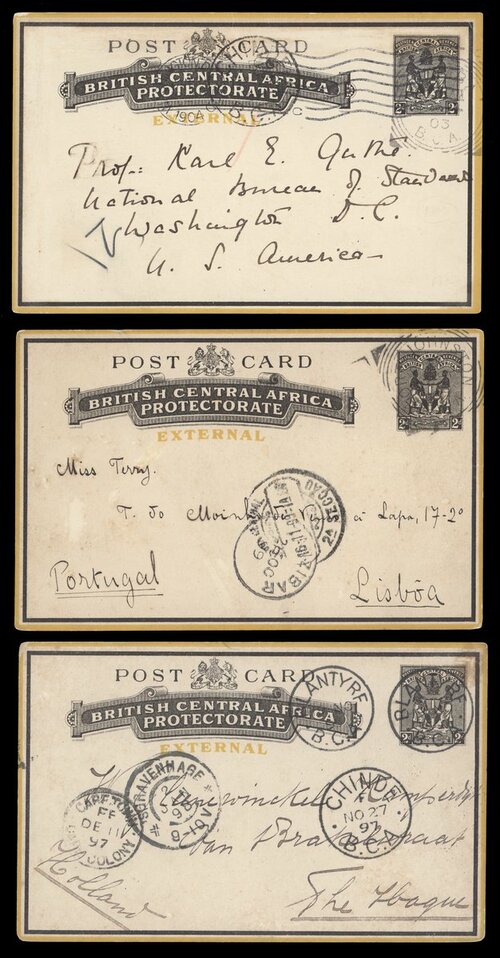 POST CARD
BRITISH CENTRAL AFRICA
PROTECTORATE
EXTERNAL
2d
03
B.C.A.
Prof: Karl E. Guthe
National Bureau of Standards
Washington D.C.
U. S. America
POST CARD
BRITISH CENTRAL AFRICA
PROTECTORATE
EXTERNAL
2d
JOHNSTON
Miss Terry.
T. do Moinho de Vento à Lapa, 17-2º
Portugal
Lisbôa
2A SECCAO
ZIBAR
POST CARD
BRITISH CENTRAL AFRICA
PROTECTORATE
EXTERNAL
2d
ANTYRE
B.C.A.
BLANTYRE
B.C.A.
'SGRAVENHAGE
CAPE TOWN
DE 11
97
COLONY
CHINDE
NO 27
97
B.C.A.
Van
Holland
The Hague